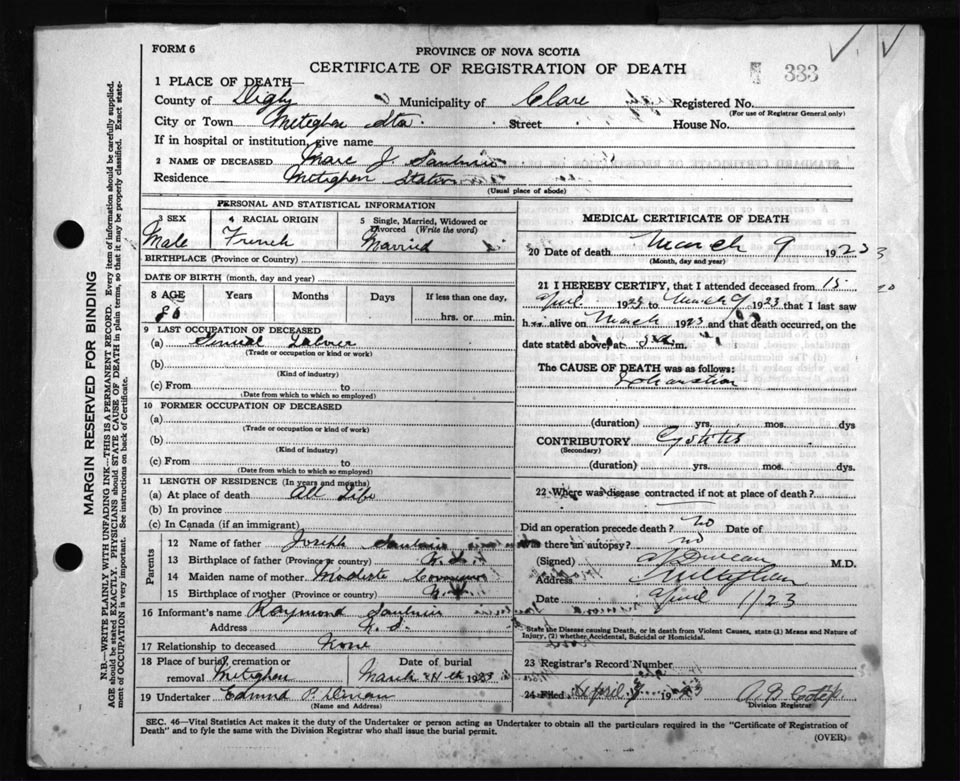 FORM 6
PROVINCE OF NOVA SCOTIA
CERTIFICATE OF REGISTRATION OF DEATH
333
1 PLACE OF DEATH—
County of Digby Municipality of Clare Registered No.
(For use of Registrar General only)
City or Town Meteghan Sta. Street House No.
If in hospital or institution, give name
2 NAME OF DECEASED Marc J. Saulnier
Residence Meteghan Station
(Usual place of abode)
PERSONAL AND STATISTICAL INFORMATION
3 SEX Male
4 RACIAL ORIGIN French
5 Single, Married, Widowed or Divorced (Write the word) Married
BIRTHPLACE (Province or Country)
DATE OF BIRTH (month, day and year)
8 AGE Years Months Days If less than one day,
hrs. or min.
9 LAST OCCUPATION OF DECEASED
(a) General Laborer
(Trade or occupation or kind or work)
(b)
(Kind of industry)
(c) From to
(Date from which to which so employed)
10 FORMER OCCUPATION OF DECEASED
(a)
(Trade or occupation or kind of work)
(b)
(Kind of industry)
(c) From to
(Date from which to which so employed)
11 LENGTH OF RESIDENCE (In years and months)
(a) At place of death All Life
(b) In province
(c) In Canada (if an immigrant)
Parents
12 Name of father Joseph Saulnier
13 Birthplace of father (Province or country) N. S.
14 Maiden name of mother Modiste
15 Birthplace of mother (Province or country) N. S.
16 Informant's name Raymond Saulnier
Address N. S.
17 Relationship to deceased None
18 Place of burial, cremation or removal Meteghan
Date of burial March 1923
19 Undertaker Edmund P.
(Name and Address)
MEDICAL CERTIFICATE OF DEATH
20 Date of death March 9 1923
(Month, day and year)
21 I HEREBY CERTIFY, that I attended deceased from 15
April 192 to March 9 1923 that I last saw
h alive on March 1923 and that death occurred, on the
date stated above, at m.
The CAUSE OF DEATH was as follows:
Exhaustion
(duration) yrs. mos. dys
CONTRIBUTORY Cystitis
(Secondary)
(duration) yrs. mos. dys.
22 Where was disease contracted if not at place of death?
Did an operation precede death? no Date of
Was there an autopsy? no
(Signed) M.D.
Address Meteghan
Date April 1/23
State the Disease causing Death, or in death from Violent Causes, state (1) Means and Nature of
Injury, (2) whether Accidental, Suicidal or Homicidal.
23 Registrar's Record Number
24 Filed April 1923
Division Registrar
SEC. 46—Vital Statistics Act makes it the duty of the Undertaker or person acting as Undertaker to obtain all the particulars required in the "Certificate of Registration of
Death" and to fyle the same with the Division Registrar who shall issue the burial permit.
(OVER)
MARGIN RESERVED FOR BINDING
N.B.—WRITE PLAINLY WITH UNFADING INK—THIS IS A PERMANENT RECORD. Every item of information should be carefully supplied.
AGE should be stated EXACTLY. PHYSICIANS should STATE CAUSE OF DEATH in plain terms, so that it may be properly classified. Exact state-
ment of OCCUPATION is very important. See instructions on back of Certificate.